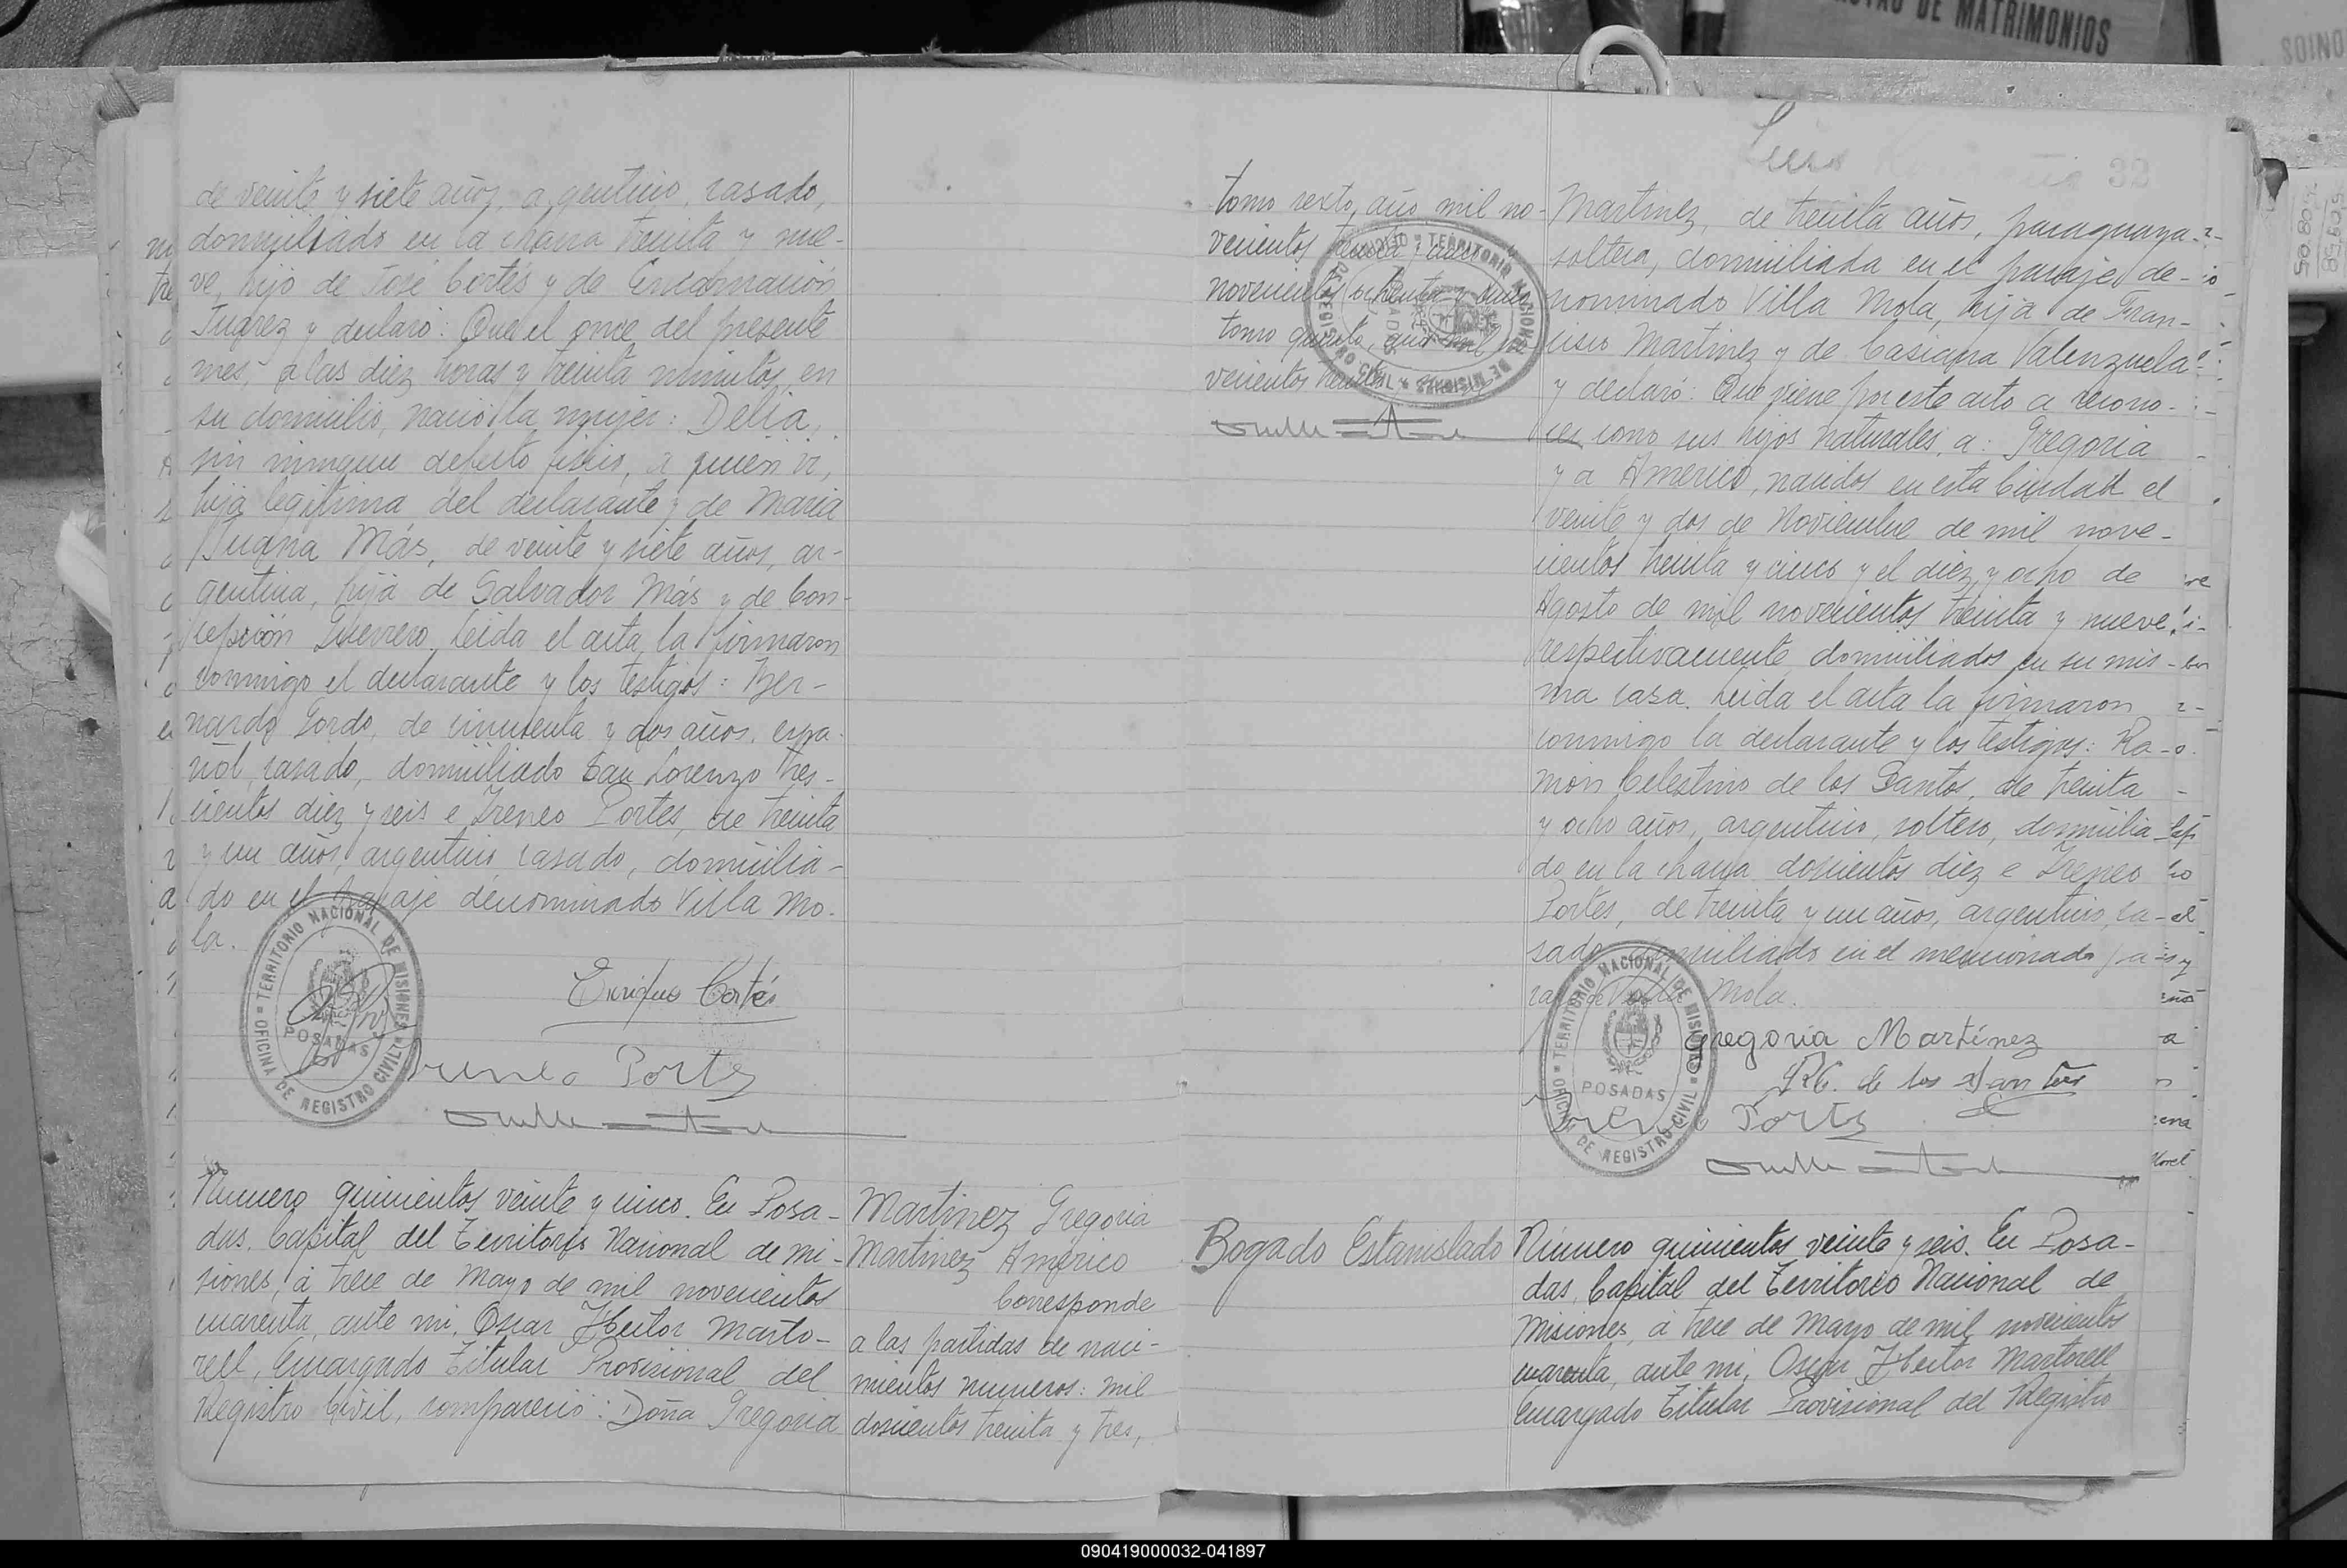 DE MATRIMONIOS
de veinte y siete años, argentino, casado,
domiciliado en la chacra treinta y nue-
ve, hijo de José Cortés y de Encarnación
Juarez y declaró: Que el once del presente
mes, a las diez horas y treinta minutos, en
su domicilio, nació la mujer: Delia,
sin ningun defecto fisico, a quien vi,
hija legitima del declarante y de Maria
Juana Más, de veinte y siete años, ar-
gentina, hija de Salvador Más y de Con-
cepsión Guerrero. Leida el acta la firmaron
conmigo el declarante y los testigos: Ber-
nardo Gordo, de cincuenta y dos años, espa-
ñol, casado, domiciliado San Lorenzo tres-
cientos diez y seis e Ireneo Portes, de treinta
y un años, argentino, casado, domicilia-
do en el paraje denominado Villa Mo-
la.
TERRITORIO NACIONAL DE MISIONES
POSADAS
OFICINA DE REGISTRO CIVIL
Enrique Cortés
Ireneo Portes
Número quinientos veinte y cinco. En Posa-
das, Capital del Territorio Nacional de Mi-
siones, a trece de Mayo de mil novecientos
cuarenta, ante mi, Oscar Hector Marto-
rell, Encargado Titular Provisional del
Registro Civil, compareció: Doña Gregoria
Martinez Gregoria
Martinez Américo
Corresponde
a las partidas de naci-
mientos numeros: mil
doscientos treinta y tres,
32
tomo sexto, año mil no-
vecientos treinta y cinco y
novecientos ochenta y cinco
tomo quinto, año mil no-
vecientos treinta
TERRITORIO NACIONAL DE MISIONES
POSADAS
REGISTRO CIVIL
Martinez, de treinta años, paraguaya,
soltera, domiciliada en el paraje de-
nominado Villa Mola, hija de Fran-
cisco Martinez y de Casiana Valenzuela
y declaró: Que viene por este acto a recono-
cer como sus hijos naturales, a: Gregoria
y a Américo, nacidos en esta Ciudad el
veinte y dos de Noviembre de mil nove-
cientos treinta y cinco y el diez y ocho de
Agosto de mil novecientos treinta y nueve,
respectivamente domiciliados en su mis-
ma casa. Leida el acta la firmaron
conmigo la declarante y los testigos: Ra-
món Celestino de los Santos, de treinta
y ocho años, argentino, soltero, domicilia-
do en la chacra doscientos diez e Ireneo
Portes, de treinta y un años, argentino, ca-
sado, domiciliado en el mencionado pa-
raje de Villa Mola.
TERRITORIO NACIONAL DE MISIONES
POSADAS
OFICINA DE REGISTRO CIVIL
Gregoria Martínez
R. C. de los Santos
Ireneo Portes
Bogado Estanislado
Número quinientos veinte y seis. En Posa-
das, Capital del Territorio Nacional de
Misiones, a trece de Mayo de mil novecientos
cuarenta, ante mi, Oscar Hector Martorell
Encargado Titular Provisional del Registro
090419000032-041897